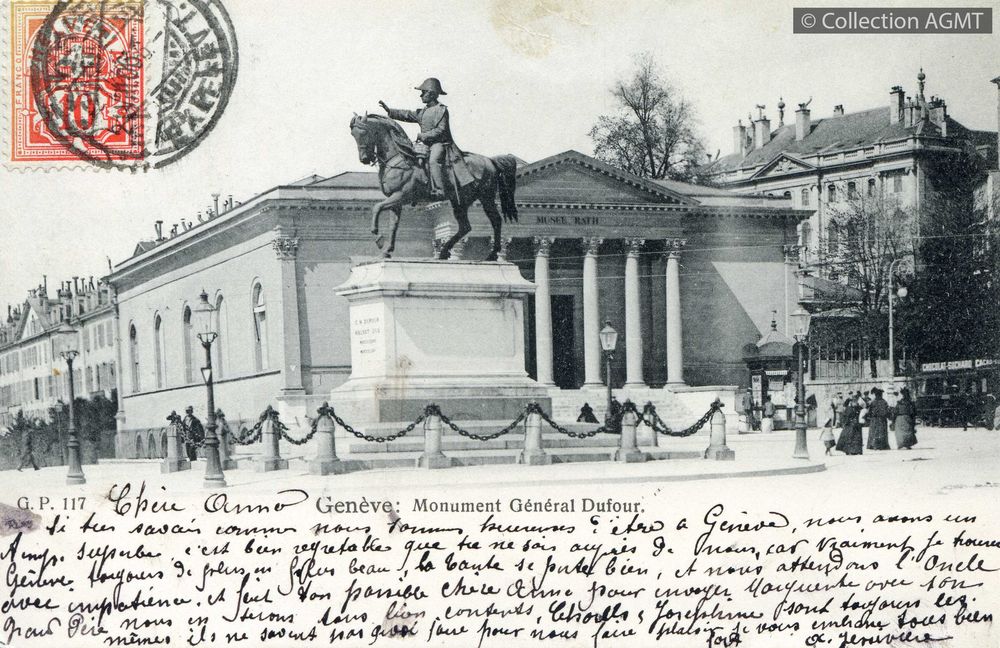 © Collection AGMT
FRANCO
10
MUSÉE RATH
G. H. DUFOUR
CHOCOLAT SUCHARD CACAO
G. P. 117
Chère Anna
Genève: Monument Général Dufour.
Si tu savais comme nous sommes heureuses d'être a Genève, nous avons un
temps superbe, c'est bien regretable que tu ne sois auprès de nous, car vraiment je trouve
Genève toujours de plus en plus beau, la tante se porte bien, et nous attendons l'Oncle
avec impatience, et fait ton possible chère Anna pour envoyer Marguerite avec son
Grand Père, nous en serons tous bien contents, et Joséphine sont toujours les
mêmes ils ne savent pas quoi faire pour nous faire plaisir, je vous embrasse tous bien
fort